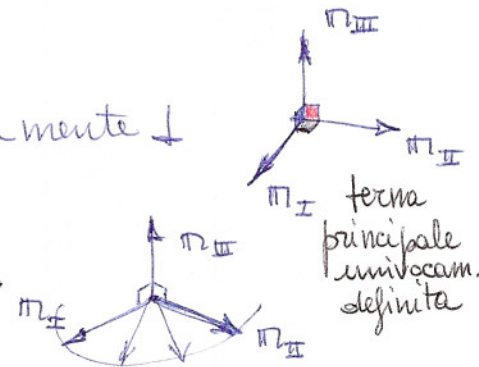 m_III
mente ⊥
m_II
m_I
terna
principale
univocam.
definita
m_III
m_I
m_II